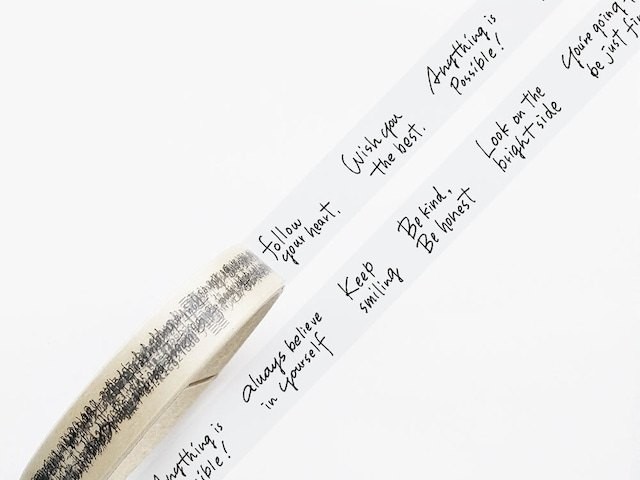 follow
your heart.
Wish you
the best.
Anything is
Possible!
Anything is
always believe
in yourself
Keep
smiling
Be kind,
Be honest
Look on the
bright side
You're going
be just